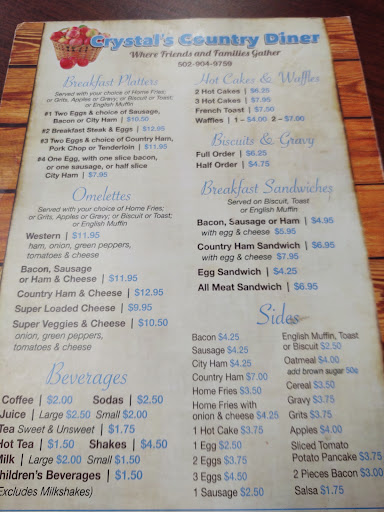 Crystal's Country Diner
Where Friends and Families Gather
502-904-9759
Breakfast Platters
Served with your choice of Home Fries;
or Grits, Apples or Gravy; or Biscuit or Toast;
or English Muffin
#1 Two Eggs & choice of Sausage,
Bacon or City Ham | $10.50
#2 Breakfast Steak & Eggs | $12.95
#3 Two Eggs & choice of Country Ham,
Pork Chop or Tenderloin | $11.95
#4 One Egg, with one slice bacon,
or one sausage, or half slice
City Ham | $7.95
Omelettes
Served with your choice of Home Fries;
or Grits, Apples or Gravy; or Biscuit or Toast;
or English Muffin
Western | $11.95
ham, onion, green peppers,
tomatoes & cheese
Bacon, Sausage
or Ham & Cheese | $11.95
Country Ham & Cheese | $12.95
Super Loaded Cheese | $9.95
Super Veggies & Cheese | $10.50
onion, green peppers,
tomatoes & cheese
Beverages
Coffee | $2.00 Sodas | $2.50
Juice | Large $2.50 Small $2.00
Tea Sweet & Unsweet | $1.75
Hot Tea | $1.50 Shakes | $4.50
Milk | Large $2.00 Small $1.50
hildren's Beverages | $1.50
(Excludes Milkshakes)
Hot Cakes & Waffles
2 Hot Cakes | $6.25
3 Hot Cakes | $7.95
French Toast | $7.50
Waffles | 1 – $4.00 2 – $7.00
Biscuits & Gravy
Full Order | $6.25
Half Order | $4.75
Breakfast Sandwiches
Served on Biscuit, Toast
or English Muffin
Bacon, Sausage or Ham | $4.95
with egg & cheese $5.95
Country Ham Sandwich | $6.95
with egg & cheese | $7.95
Egg Sandwich | $4.25
All Meat Sandwich | $6.95
Sides
Bacon $4.25
Sausage $4.25
City Ham $4.25
Country Ham $7.00
Home Fries $3.50
Home Fries with
onion & cheese $4.25
1 Hot Cake $3.75
1 Egg $2.50
2 Eggs $3.75
3 Eggs $4.50
1 Sausage $2.50
English Muffin, Toast
or Biscuit $2.50
Oatmeal $4.00
add brown sugar 50¢
Cereal $3.50
Gravy $3.75
Grits $3.75
Apples $4.00
Sliced Tomato
Potato Pancake $3.75
2 Pieces Bacon $3.00
Salsa $1.75